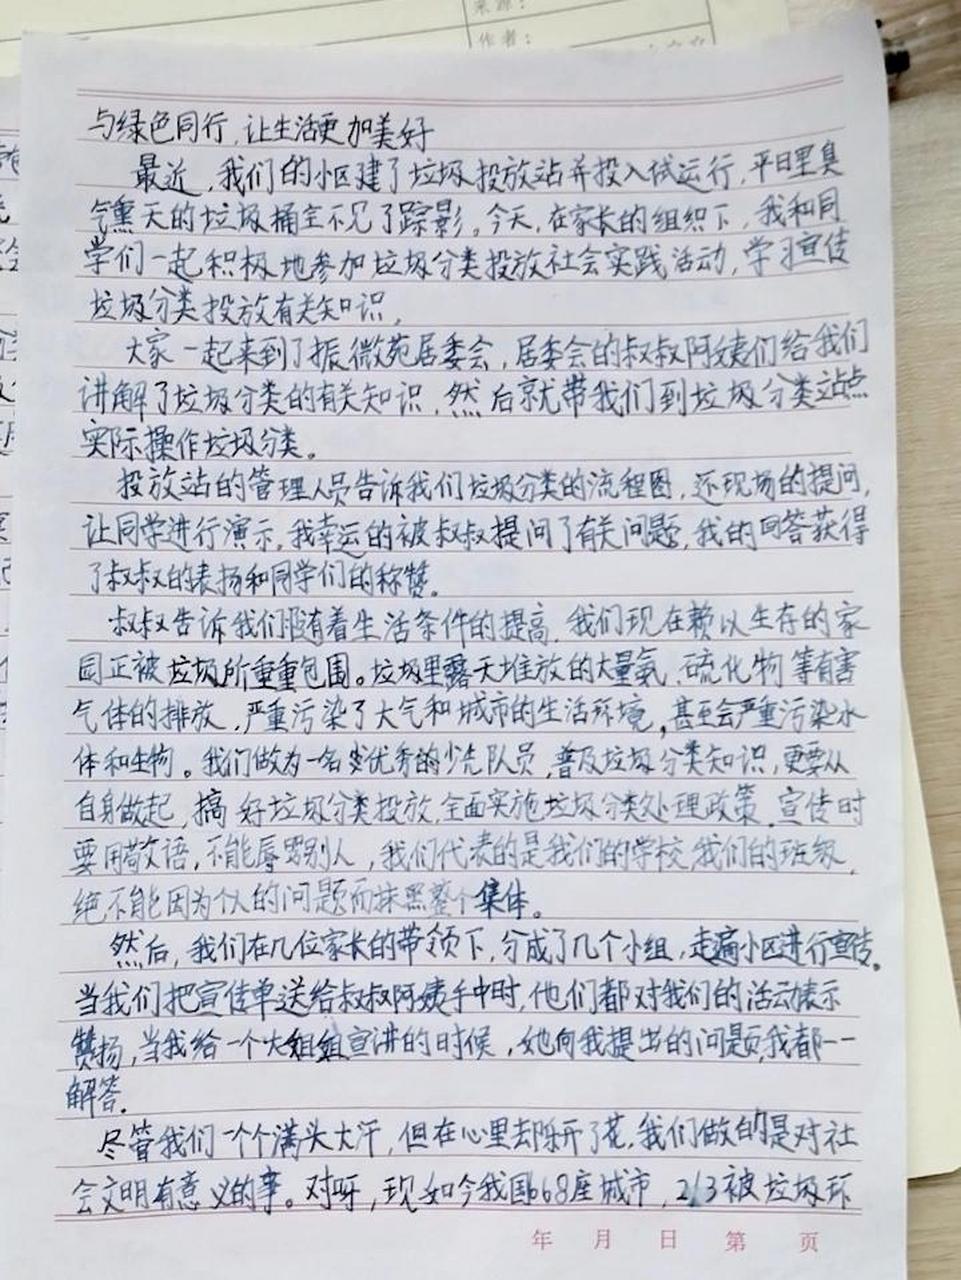 来源：
作者：
与绿色同行,让生活更加美好
最近,我们的小区建了垃圾投放站并投入试运行,平日里臭
气熏天的垃圾桶全不见了踪影。今天,在家长的组织下,我和同
学们一起积极地参加垃圾分类投放社会实践活动,学习宣传
垃圾分类投放有关知识,
大家一起来到了振微苑居委会,居委会的叔叔阿姨们给我们
讲解了垃圾分类的有关知识,然后就带我们到垃圾分类站点
实际操作垃圾分类。
投放站的管理人员告诉我们垃圾分类的流程图,还现场的提问,
让同学进行演示,我幸运的被叔叔提问了有关问题,我的回答获得
了叔叔的表扬和同学们的称赞。
叔叔告诉我们随着生活条件的提高,我们现在赖以生存的家
园正被垃圾所重重包围。垃圾里露天堆放的大量氨、硫化物等有害
气体的排放,严重污染了大气和城市的生活环境,甚至会严重污染水
体和生物。我们做为一名优秀的少先队员,普及垃圾分类知识,更要从
自身做起,搞好垃圾分类投放,全面实施垃圾分类处理政策,宣传时
要用敬语,不能辱骂别人,我们代表的是我们的学校,我们的班级,
绝不能因为个人的问题而抹黑整个集体。
然后,我们在几位家长的带领下,分成了几个小组,走遍小区进行宣传。
当我们把宣传单送给叔叔阿姨手中时,他们都对我们的活动表示
赞扬,当我给一个大姐姐宣讲的时候,她向我提出的问题,我都一一
解答.
尽管我们一个个满头大汗,但在心里却乐开了花,我们做的是对社
会文明有意义的事。对呀,现如今我国68座城市,2/3被垃圾环
年 月 日 第 页